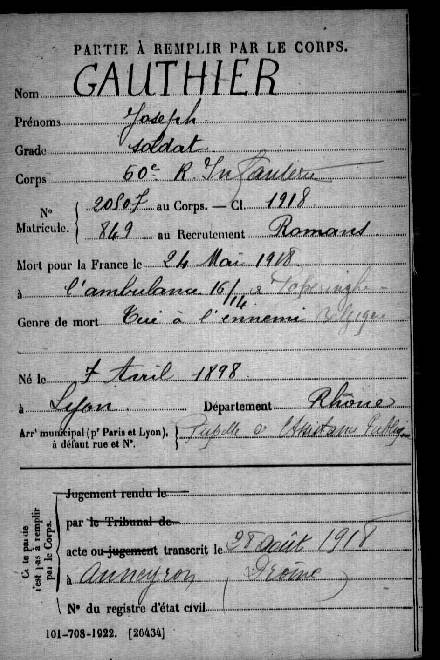 PARTIE À REMPLIR PAR LE CORPS.
Nom GAUTHIER
Prénoms Joseph
Grade soldat
Corps 60e R. Infanterie
N° Matricule. { 20807 au Corps. — Cl. 1918
849 au Recrutement Romans
Mort pour la France le 24 Mai 1918
à l'ambulance 16/14 à
Genre de mort Tué à l'ennemi
Né le 7 Avril 1898
à Lyon Département Rhône
Arrt municipal (pr Paris et Lyon), à défaut rue et N°. { Pupille de l'Assistance Publique
Cette partie n'est pas à remplir par le Corps.
Jugement rendu le
par le Tribunal de
acte ou jugement transcrit le 28 août 1918
à Anneyron (Drôme)
N° du registre d'état civil
101-708-1922. [26434]